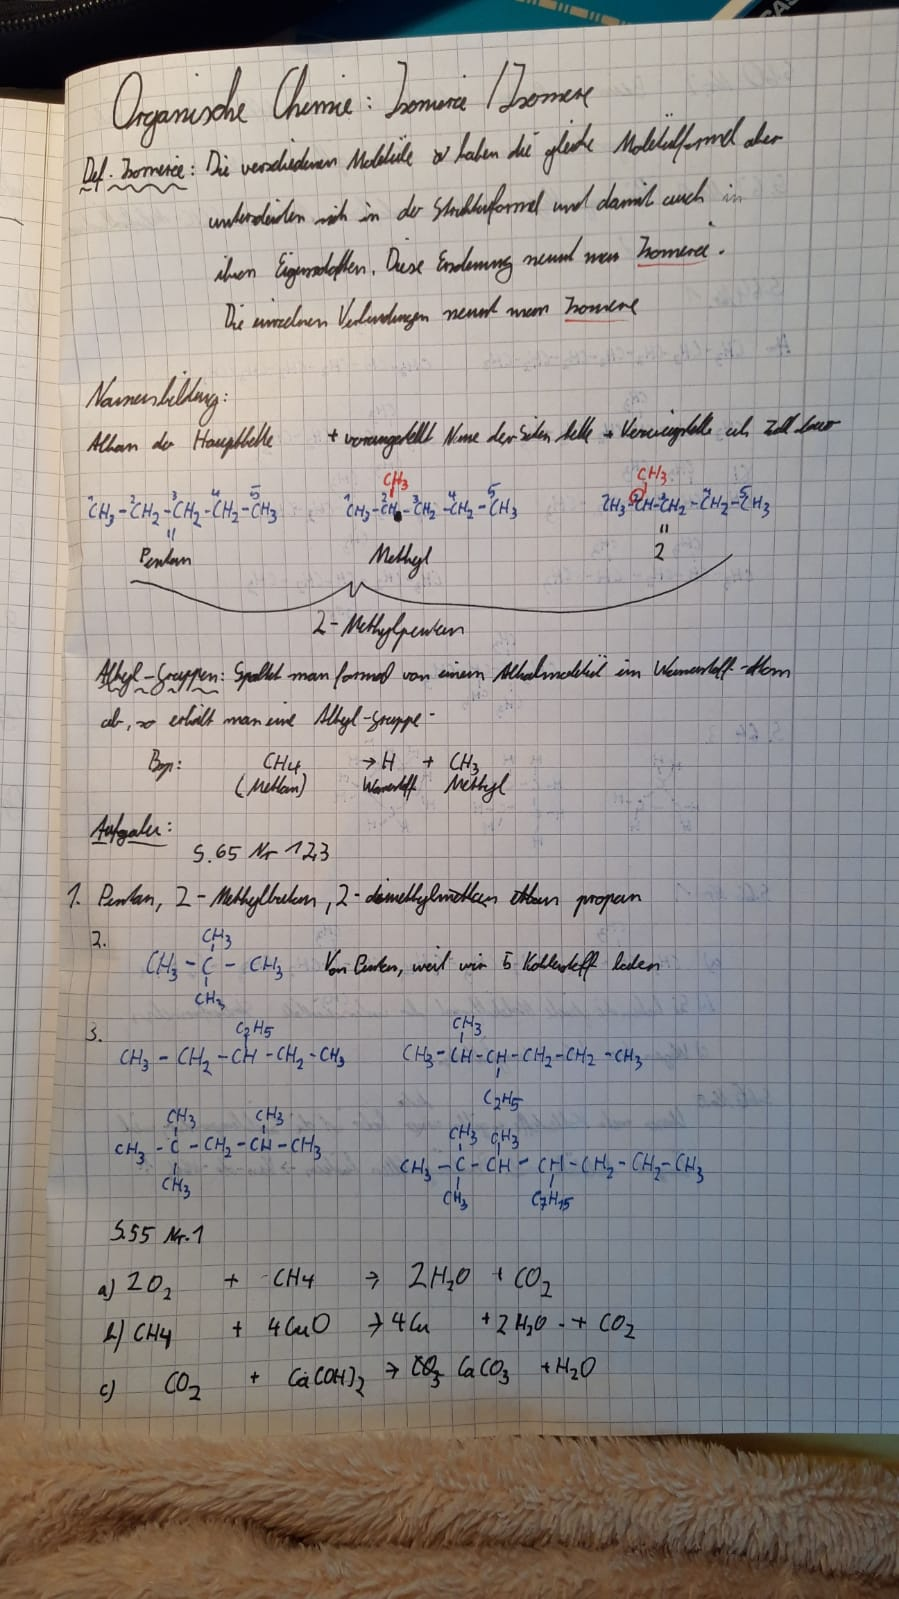 Organische Chemie: Isomerie / Isomere
Def. Isomerie: Die verschiedenen Moleküle haben die gleiche Molekülformel aber
unterscheiden sich in der Strukturformel und damit auch in
ihren Eigenschaften. Diese nennt man Isomerie.
Die einzelnen Verbindungen nennt man Isomere
Namensbildung:
Alkan der Hauptkette + vorangestellt Name der Seitenkette +
CH3 CH3
1 2 3 4 5 1 2 3 4 5 2 4 5
CH3-CH2-CH2-CH2-CH3 CH3-CH-CH2-CH2-CH3 CH3-CH-CH2-CH2-CH3
" "
Pentan Methyl 2
2-Methylpentan
Alkyl-Gruppen: Spaltet man formal von einem Alkalmolekül ein Wasserstoff-Atom
ab, so erhält man eine Alkyl-Gruppe-
Bsp: CH4 → H + CH3
(Methan) Wasserstoff Methyl
Aufgaben:
S.65 Nr 1,2,3
1. Pentan, 2-Methylbutan, 2- propan
2. CH3
CH3 - C - CH3 Von Pentan, weil wir 5 Kohlenstoff haben
CH3
3. C2H5 CH3
CH3 - CH2 - CH - CH2 - CH3 CH3 - CH - CH - CH2 - CH2 - CH3
C2H5
CH3 CH3 CH3 CH3
CH3 - C - CH2 - CH - CH3 CH3 - C - CH - CH - CH2 - CH2 - CH3
CH3 CH3 C7H15
S.55 Nr.1
a) 2O2 + CH4 → 2H2O + CO2
b) CH4 + 4CuO → 4Cu + 2H2O + CO2
c) CO2 + Ca(OH)2 → CaCO3 + H2O